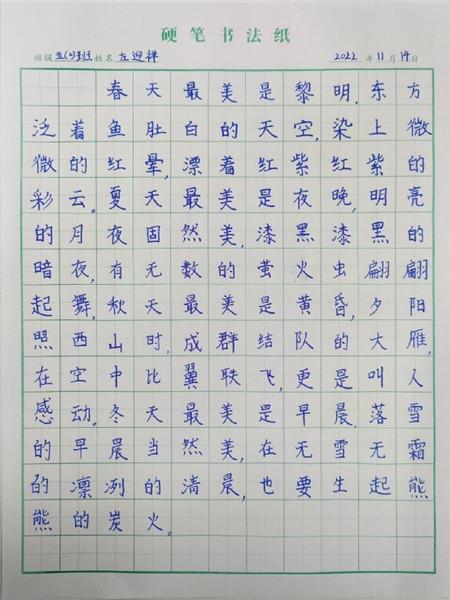 硬笔书法纸
班级 五(2)班 姓名 左迎祥 2022年11月14日
春天最美是黎明,东方
泛着鱼肚白的天空,染上微
微的红晕,漂着红紫红紫的
彩云。夏天最美是夜晚,明亮
的月夜固然美,漆黑漆黑的
暗夜,有无数的萤火虫翩翩
起舞,秋天最美是黄昏,夕阳
照西山时,成群结队的大雁,
在空中比翼联飞,更是叫人
感动。冬天最美是早晨,落雪
的早晨当然美,在无雪无霜
的凛冽的清晨,也要生起熊
熊的炭火。